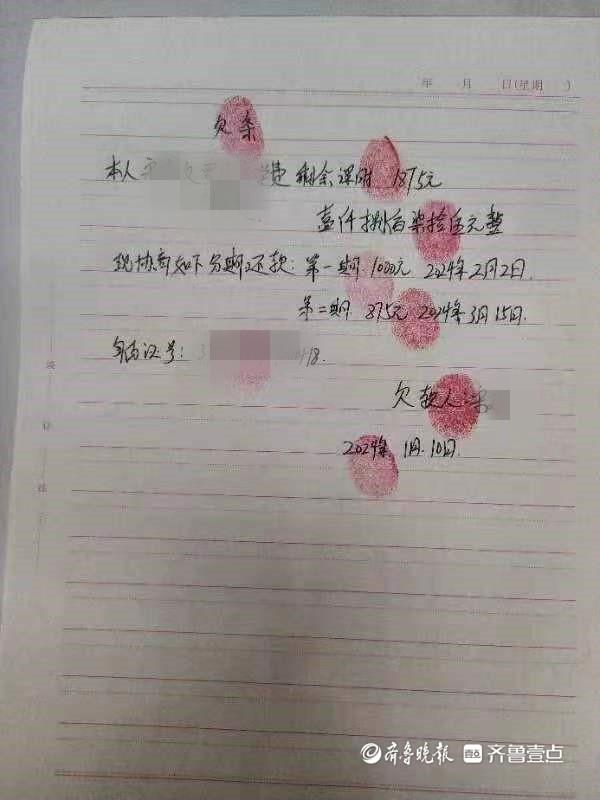 年 月 日(星期 )
欠条
本人 费 剩余课时 1875元
壹仟捌百柒拾伍元整
现协商如下分期还款: 第一期 1000元 2024年2月2日.
第二期 875元 2024年3月15日.
身份证号: 3 418.
欠款人:
2024年 1月.10日.
装
订
线
齐鲁晚报 齐鲁壹点